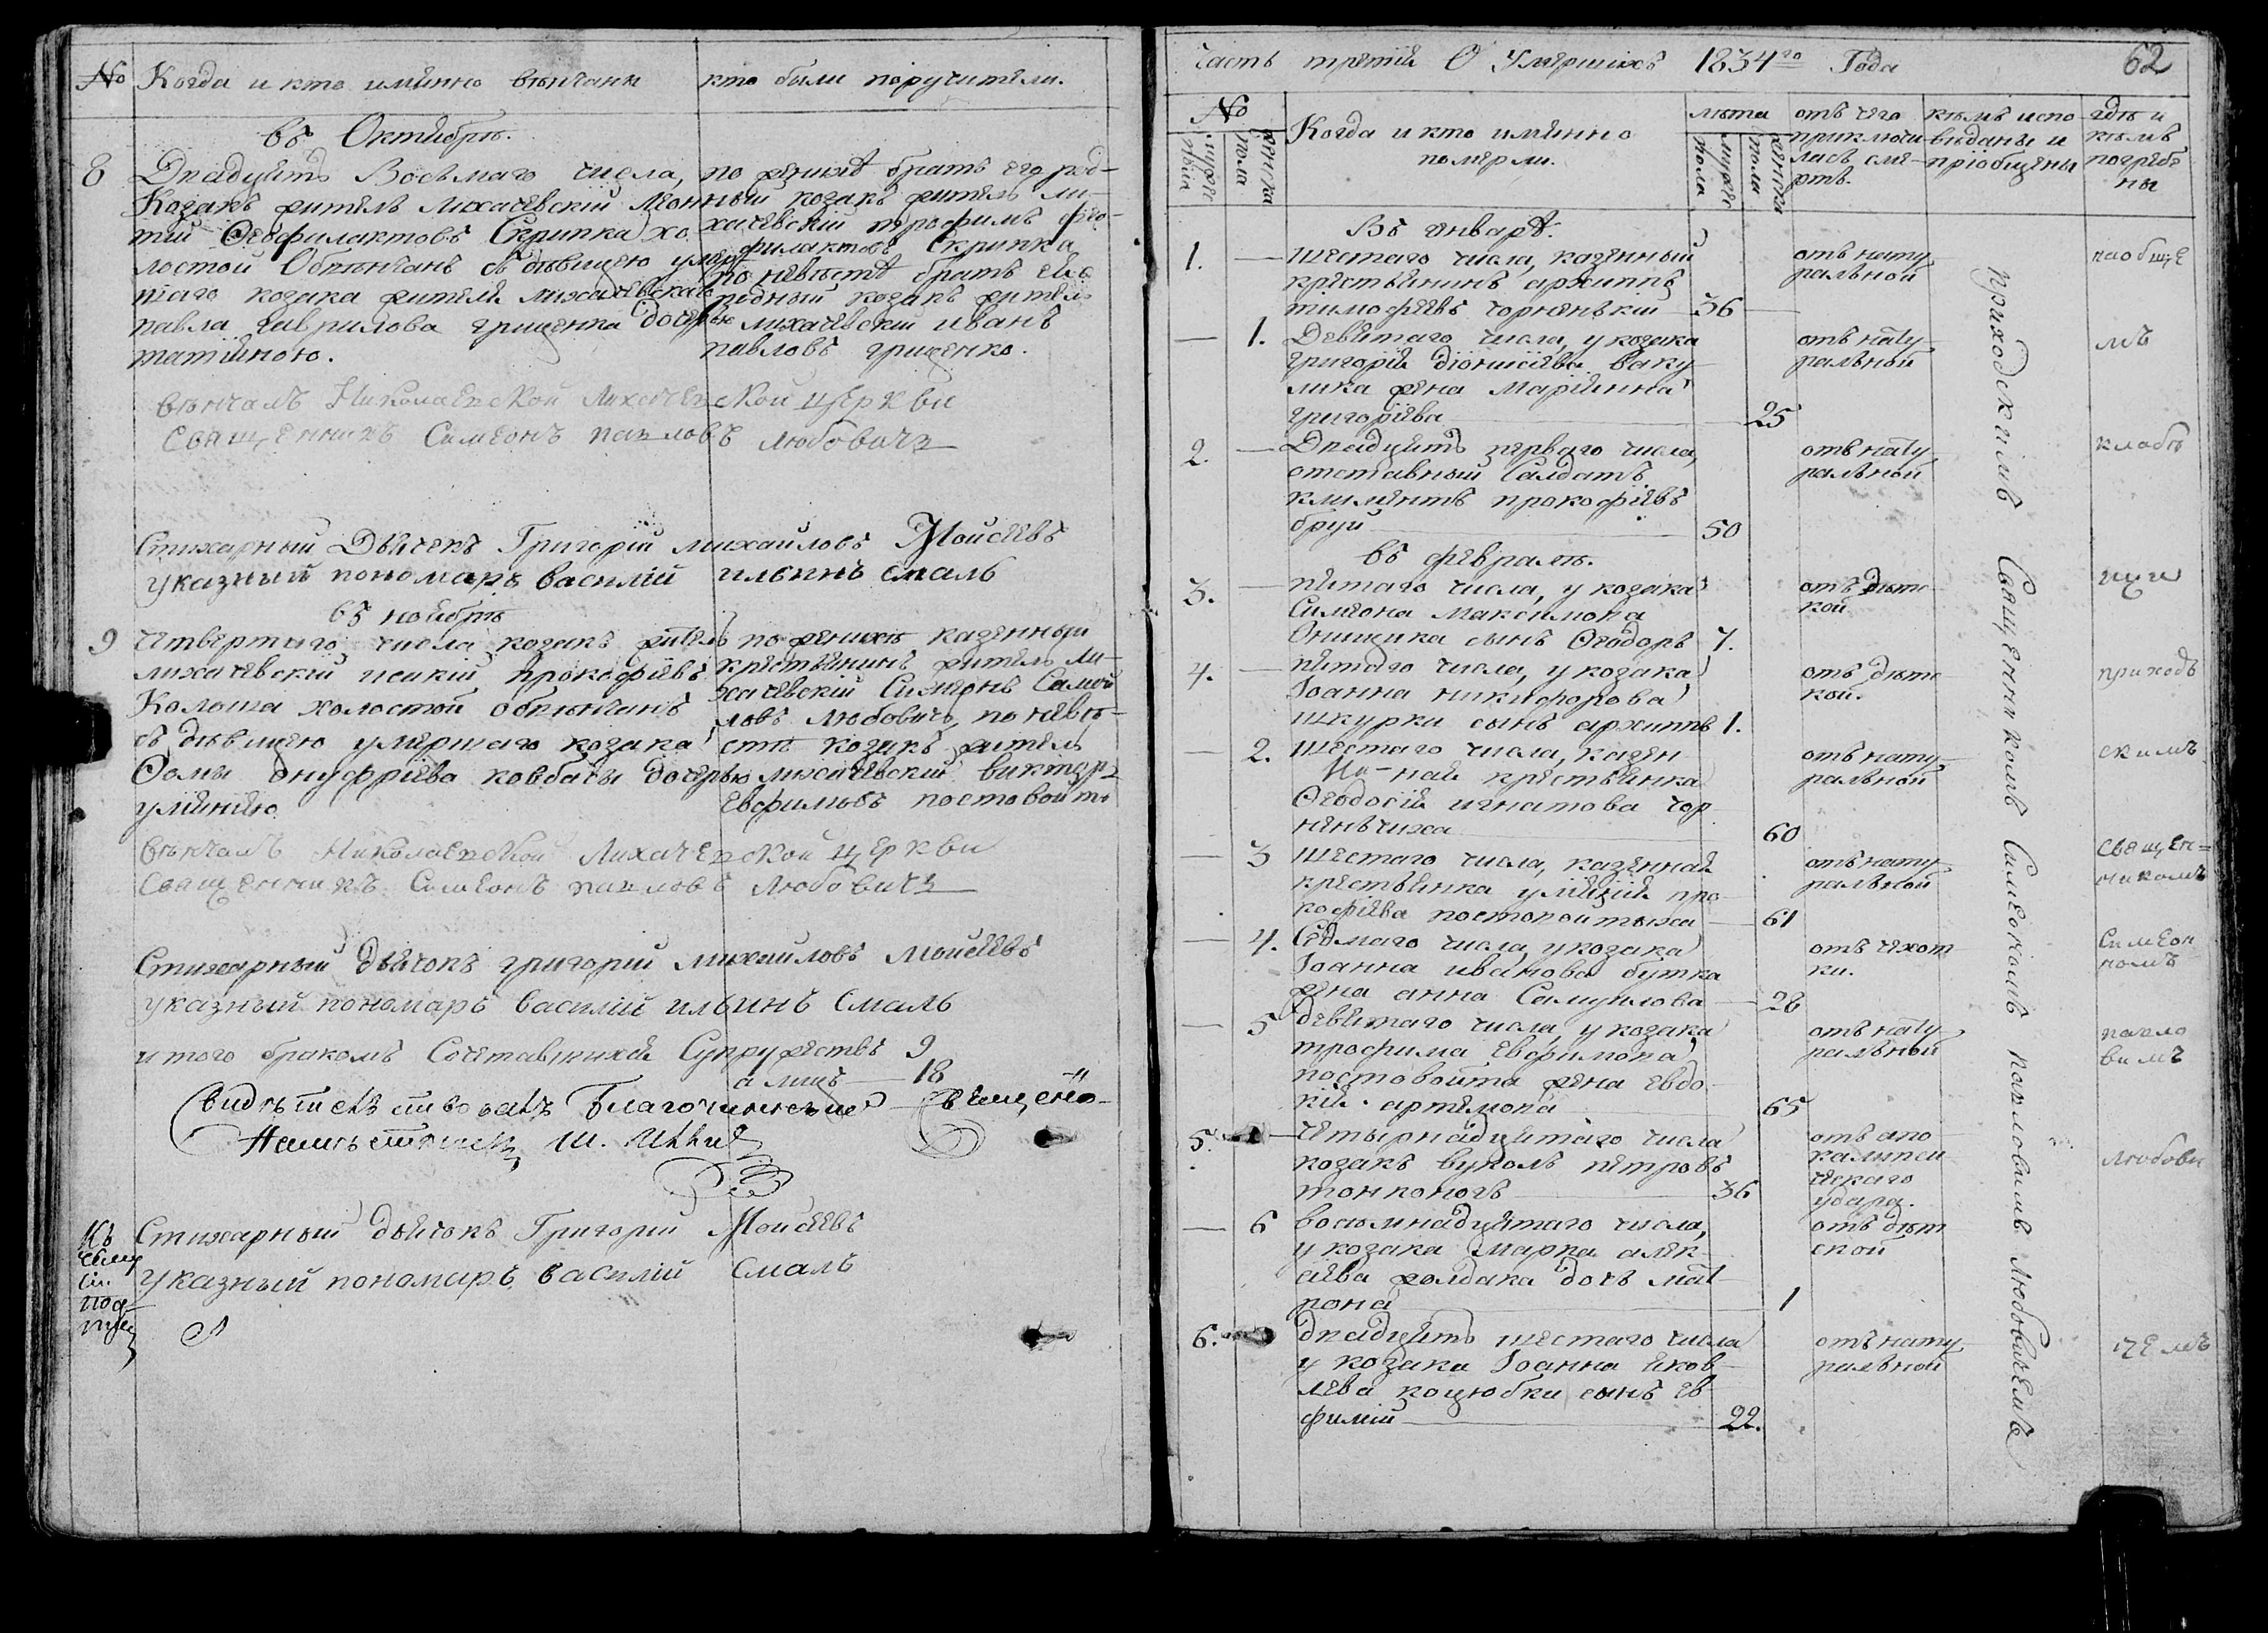 No Когда и кто имянно вѣнчани
кто были поручители.
въ Октябрѣ.
8
Двадцять Восьмаго числа,
Козакъ житель лихачевскій Леон
тій Ѳеофилактовъ Скрипка хо
лостой Обвѣнчанъ съ дѣвицею умер
шаго козака жителя лихачевскаго
павла гаврилова грищенка дочерью
татіяною.
по женихѣ братъ его род-
ный козакъ житель ли-
хачевскій трофимъ фео-
филактовъ Скрипка
по невѣстѣ братъ ея
родный козакъ житель
лихачевскій иванъ
павловъ грищенко.
вѣнчалъ Николаевской Лихачевской церкви
священникъ Симеонъ павловъ Любовичъ
Стихарный Дьячекъ Григорій михайловъ Моисеевъ
указный пономарь василій ильинъ смаль
въ ноябрѣ
9
четвертаго числа козакъ житель
лихачевскій прокофіевъ
Колоша холостой обвѣнчанъ
съ дѣвицею умершаго козака
Ѳомы онуфріева ковбасы дочерью
уліяніею
по женихѣ казенный
крестьянинъ житель ли-
хачевскій Симеонъ Самой
ловъ любовичъ, по невѣ-
стѣ козакъ житель
лихачевскій викторъ
Евфимовъ постовойто
вѣнчалъ Николаевской Лихачевской церкви
священникъ Симеонъ павловъ Любовичъ
Стихарный дьячокъ григорій михайловъ моисеевъ
указный пономарь василій ильинъ смаль
итого бракомъ Сочетавшихся Супружествъ 9
а лицъ 18
Свидѣтельствовалъ Благочинный Священно-
Намѣстникъ
Къ
сему
Стихарный дьячокъ Григорій Моисеевъ
указный пономарь василій смаль
часть третія О Умершихъ 1834го Года
62
No
мужес
пола
женска
пола
Когда и кто имянно
померли.
лѣта
мужес
пола
женска
пола
отъ чего
приключи
лась сме-
рть.
кѣмъ испо
вѣданы и
пріобщены
гдѣ и
кѣмъ
погребе
ны
Въ январѣ.
1. — шестаго числа, казенный
крестьянинъ архиппъ
тимофеевъ чорненькій — 36
отъ нату
ральной
на общемъ
— 1. Девятаго числа, у козака
григорія діонисіева ваку
лика жена Маріянна
григоріева — 25
отъ нату
ральной
2. — Двадцять перваго числа,
отставный Салдатъ
климентъ прокофіевъ
бруй — 50
отъ нату
ральной
кладби
въ февралѣ.
3. — пятаго числа, у козака
Симеона максимова
Онищика сынъ Ѳеодоръ 7.
отъ дѣтс
кой
щи
4. — пятаго числа, у козака
Іоанна никифорова
шкурки сынъ архиппъ 1.
отъ дѣтс
кой.
приход
— 2. шестаго числа, казен
ная крестьянка
Ѳеодосія игнатова чор
неньчиха — 60
отъ нату
ральной
скимъ
— 3 шестаго числа, казенная
крестьянка уліянія про
кофіева постовойтыха — 61
отъ нату
ральной
священ=
никомъ
— 4. Седмаго числа, у козака
Іоанна иванова бутка
жена анна Самуилова — 28
отъ чахот
ки.
Симеон
номъ
— 5 девятаго числа, у козака
трофима Евфимова
постовойта жена евдо-
кія артемова — 65
отъ нату
ральной
павло
вымъ
5. — четырнадцятаго числа
козакъ вуколъ петровъ
тонконогъ — 36
отъ апо
калипси
ческаго
удара.
любови
— 6 восьмнадцятаго числа,
у козака марка алек-
сіева жолдака дочь мат
рона — 1
отъ дѣт
ской
6. — двадцять шестаго числа
у козака Іоанна яков-
лева коцюбки сынъ ев
фимій — 22.
отъ нату
ральной
чемъ
приходскимъ Священникомъ Симеономъ павловымъ Любовичемъ